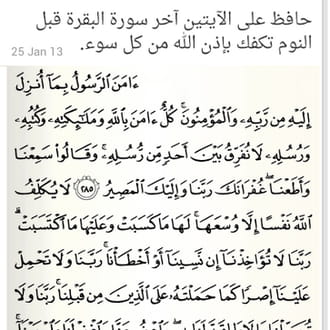 حافظ على الآيتين آخر سورة البقرة قبل
النوم تكفك بإذن الله من كل سوء.
25 Jan 13
ءَامَنَ ٱلرَّسُولُ بِمَآ أُنزِلَ
إِلَيْهِ مِن رَّبِّهِۦ وَٱلْمُؤْمِنُونَ ۚ كُلٌّ ءَامَنَ بِٱللَّهِ وَمَلَـٰٓئِكَتِهِۦ وَكُتُبِهِۦ
وَرُسُلِهِۦ لَا نُفَرِّقُ بَيْنَ أَحَدٍ مِّن رُّسُلِهِۦ ۚ وَقَالُوا۟ سَمِعْنَا
وَأَطَعْنَا ۖ غُفْرَانَكَ رَبَّنَا وَإِلَيْكَ ٱلْمَصِيرُ ٢٨٥ لَا يُكَلِّفُ
ٱللَّهُ نَفْسًا إِلَّا وُسْعَهَا ۚ لَهَا مَا كَسَبَتْ وَعَلَيْهَا مَا ٱكْتَسَبَتْ ۗ
رَبَّنَا لَا تُؤَاخِذْنَآ إِن نَّسِينَآ أَوْ أَخْطَأْنَا ۚ رَبَّنَا وَلَا تَحْمِلْ
عَلَيْنَآ إِصْرًا كَمَا حَمَلْتَهُۥ عَلَى ٱلَّذِينَ مِن قَبْلِنَا ۚ رَبَّنَا وَلَا